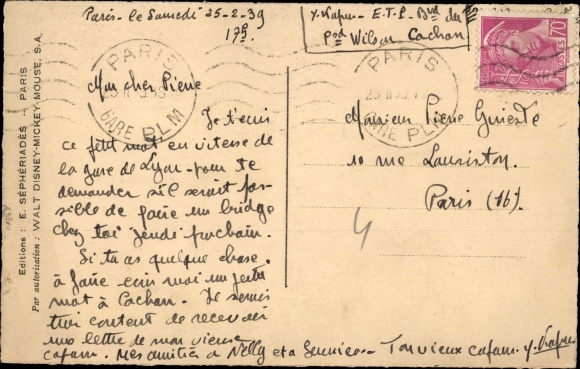 Paris - le Samedi 25-2-39
17h
Y. - E.T.P. - Bvd du
Psd Wilson Cachan
Mon cher Pierre
Je t'écris
ce petit mot en vitesse de
la gare de Lyon - pour te
demander s'il serait pos-
sible de faire un bridge
chez toi jeudi prochain.
Si tu as quelque chose
à faire écris moi un petit
mot à Cachan. Je serais
très content de recevoir
une lettre de mon vieux
cafam. Mes amitiés à Nelly et à - Ton vieux cafam. Y.
Monsieur Pierre
10 rue Lauriston.
Paris (16).
4
PARIS
GARE PLM
PARIS
GARE PLM
70
POSTES
Editions : E. SÉPHÉRIADÈS - PARIS
Par autorisation : WALT DISNEY-MICKEY-MOUSE, S.A.